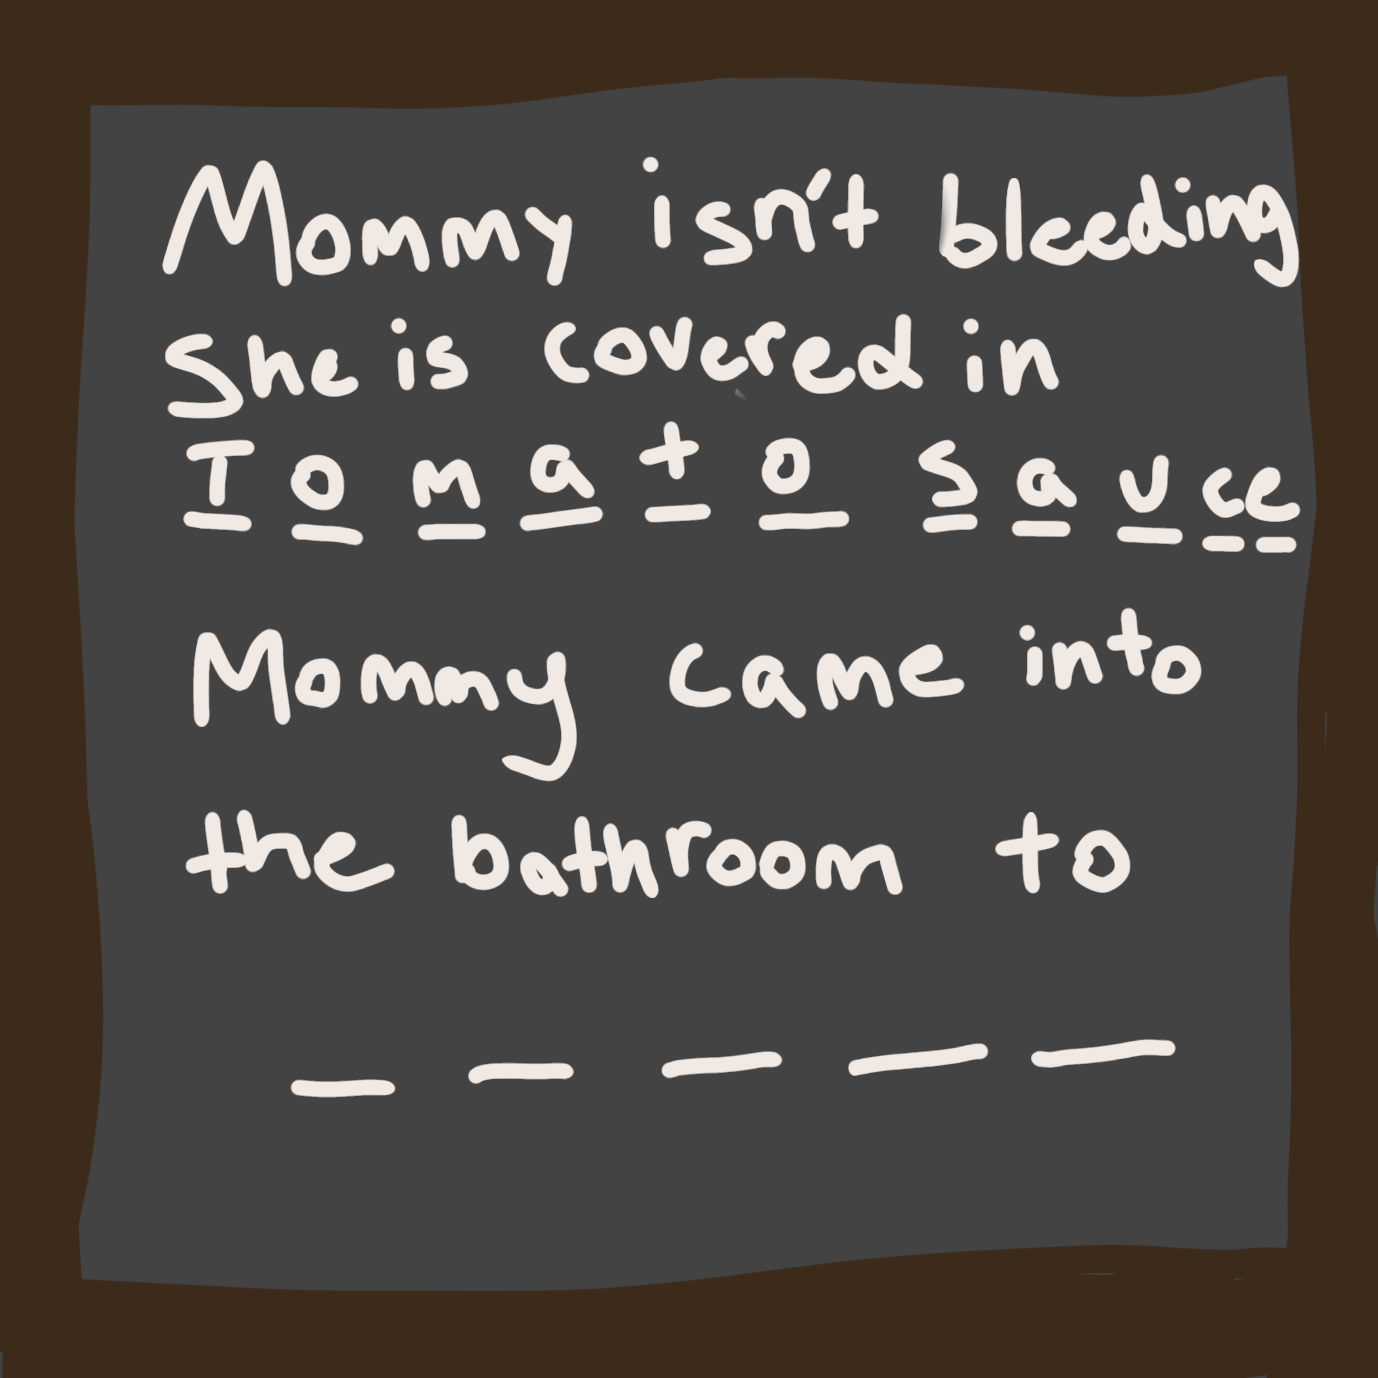 Mommy isn't bleeding
She is covered in
Tomato sauce
Mommy came into
the bathroom to
_ _ _ _ _